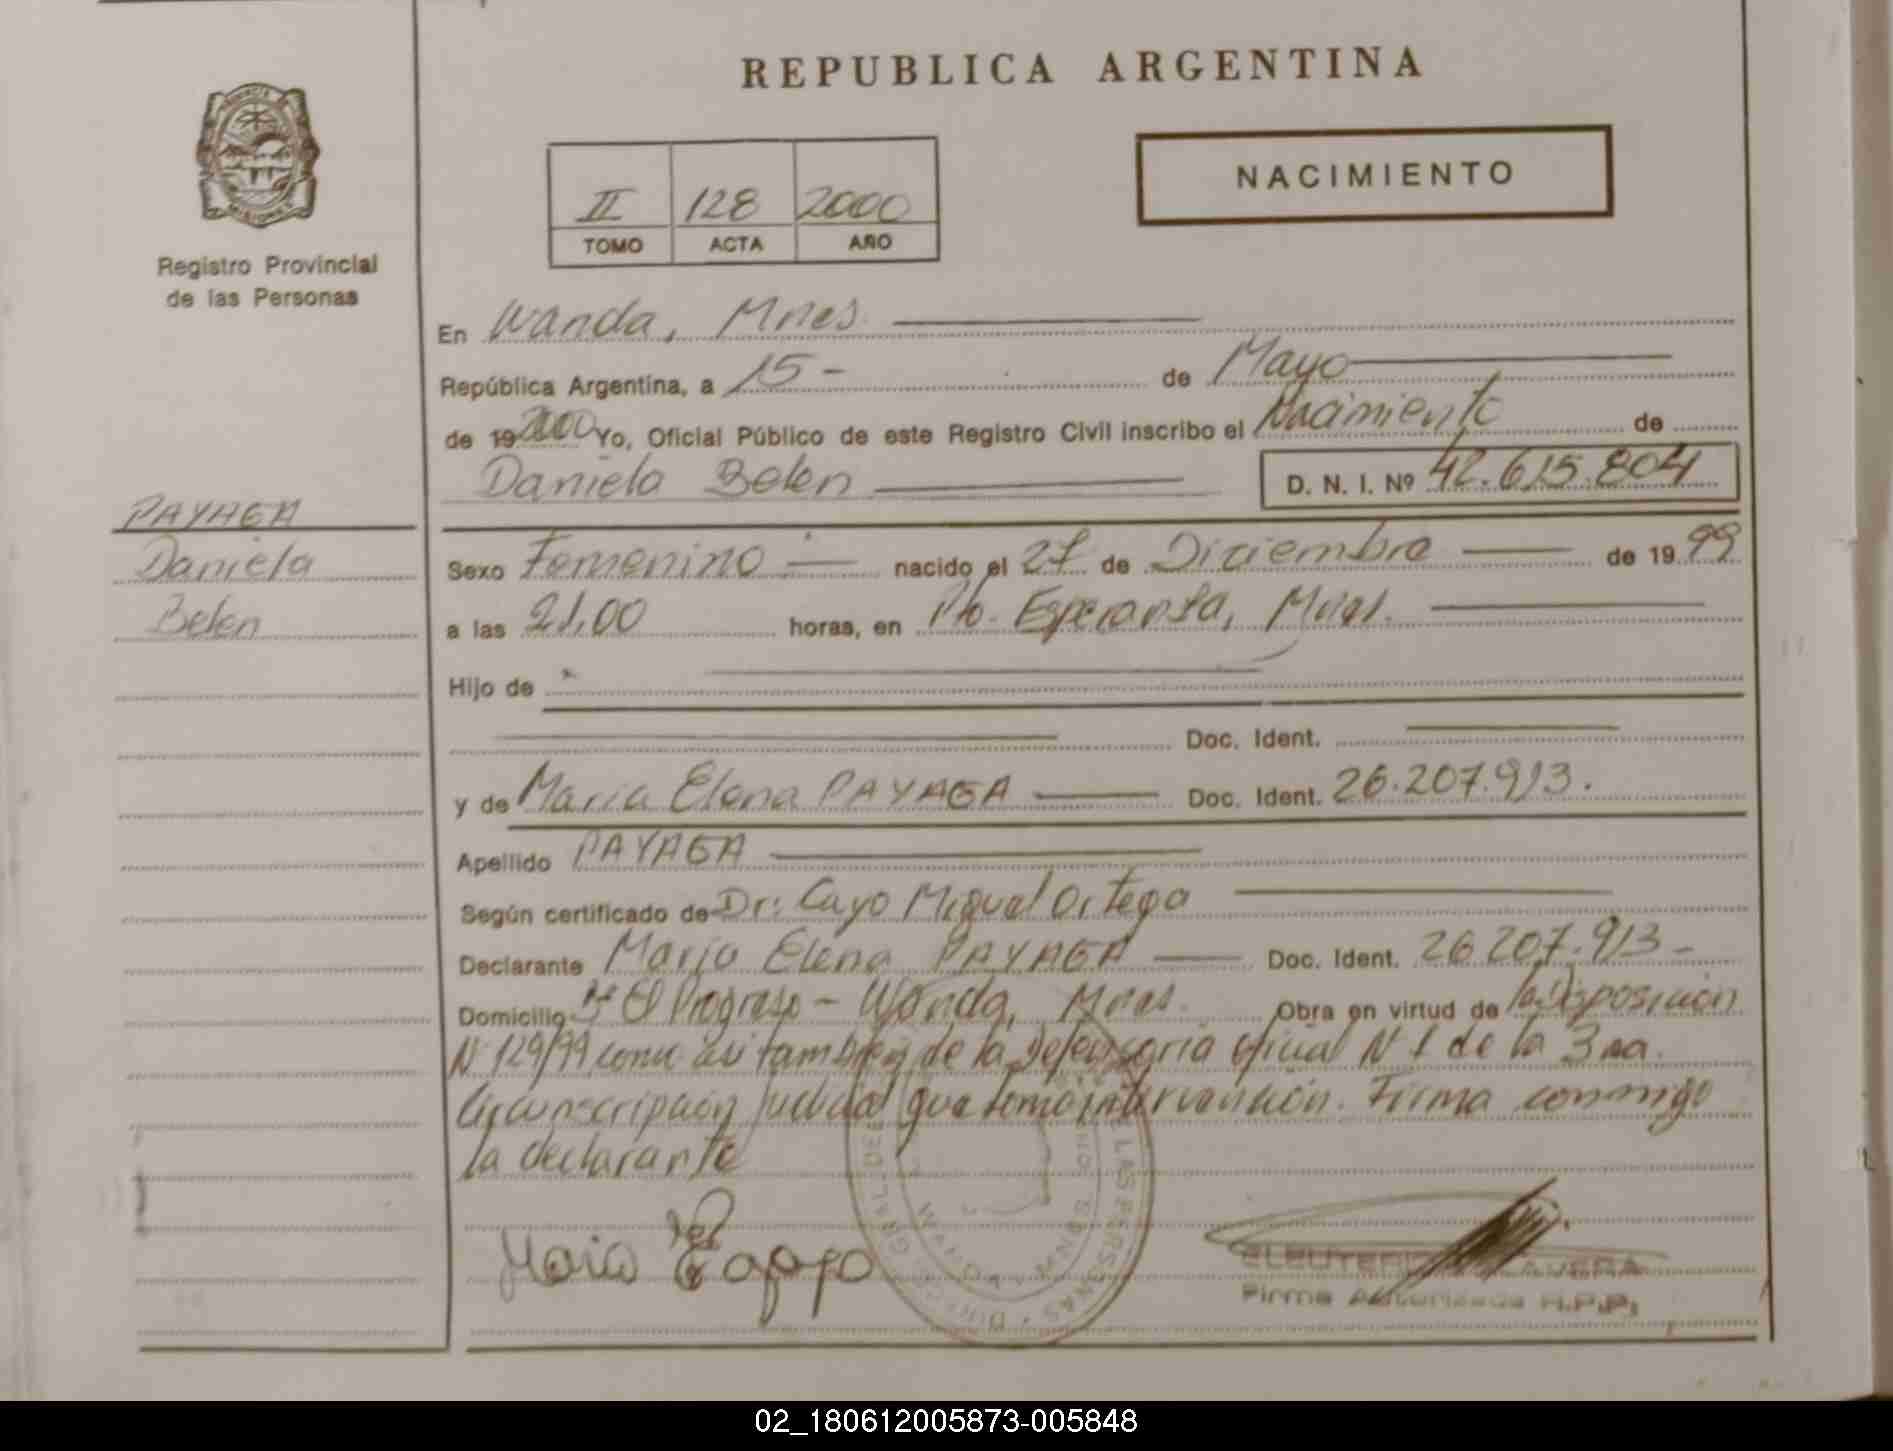 REPUBLICA ARGENTINA
NACIMIENTO
II 128 2000
TOMO ACTA AÑO
Registro Provincial
de las Personas
En Wanda, Mnes.
República Argentina, a 15 - de Mayo
de 19 2000 Yo, Oficial Público de este Registro Civil inscribo el Nacimiento de
Daniela Belen D. N. I. Nº 42.615.804
PAYAGA
Daniela
Belen
Sexo Femenino nacido el 27 de Diciembre de 19 99
a las 21,00 horas, en Pto. Esperanza, Mnes.
Hijo de
Doc. Ident.
y de Maria Elena PAYAGA Doc. Ident. 26.207.913.
Apellido PAYAGA
Según certificado de Dr: Cayo Miguel Ortega
Declarante Maria Elena PAYAGA Doc. Ident. 26.207.913 -
Domicilio Bº El Progreso - Wanda, Mnes. Obra en virtud de la Disposición
Nº 129/99 como asi tambien de la defensoria oficial Nº 1 de la 3ra.
Circunscripción judicial que tomo intervención. Firma conmigo
la declarante
Firma Autorizada R.P.P.
02_180612005873-005848